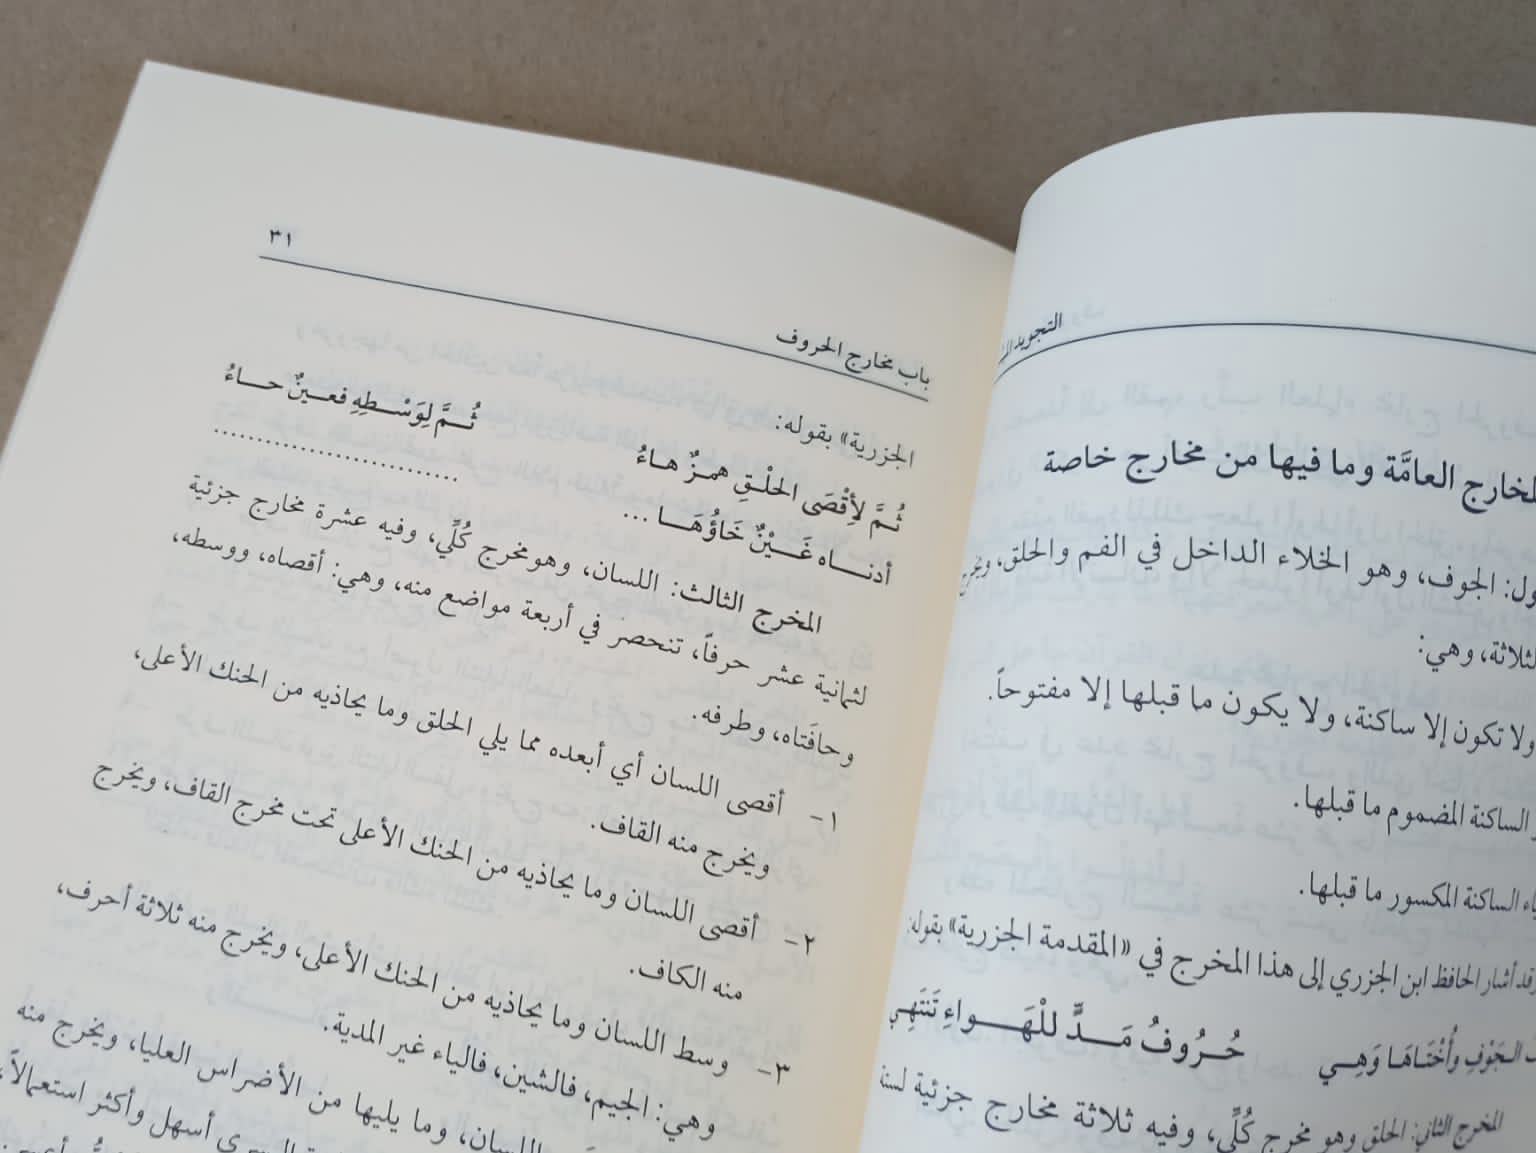 التجويد
المخارج العامَّة وما فيها من مخارج خاصة
الجوف، وهو الخلاء الداخل في الفم والحلق،
وهي:
ولا تكون إلا ساكنة، ولا يكون ما قبلها إلا مفتوحاً.
الساكنة المضموم ما قبلها.
الساكنة المكسور ما قبلها.
وقد أشار الحافظ ابن الجزري إلى هذا المخرج في «المقدمة الجزرية» بقوله:
الجَوْفِ وأُخْتَاهَا وَهِي حُرُوفُ مَدٍّ للْهَواءِ تَنتَهِي
المخرج الثاني: الحلق وهو مخرج كُلِّي، وفيه ثلاثة مخارج جزئية لستة
٣١
باب مخارج الحروف
الجزرية» بقوله:
ثُمَّ لأِقْصَى الحلْقِ همزٌ هاءُ ثُمَّ لِوَسْطِهِ فعينٌ حاءُ
أدناه غَيْنٌ خَاؤُهَا ... ..............................
المخرج الثالث: اللسان، وهو مخرج كُلِّي، وفيه عشرة مخارج جزئية
لثمانية عشر حرفاً، تنحصر في أربعة مواضع منه، وهي: أقصاه، ووسطه،
وحافَتاه، وطرفه.
١- أقصى اللسان أي أبعده مما يلي الحلق وما يحاذيه من الحنك الأعلى،
ويخرج منه القاف.
٢- أقصى اللسان وما يحاذيه من الحنك الأعلى تحت مخرج القاف، ويخرج
منه الكاف.
٣- وسط اللسان وما يحاذيه من الحنك الأعلى، ويخرج منه ثلاثة أحرف،
وهي: الجيم، فالشين، فالياء غير المدية.
اللسان، وما يليها من الأضراس العليا، ويخرج منه
أسهل وأكثر استعمالاً،